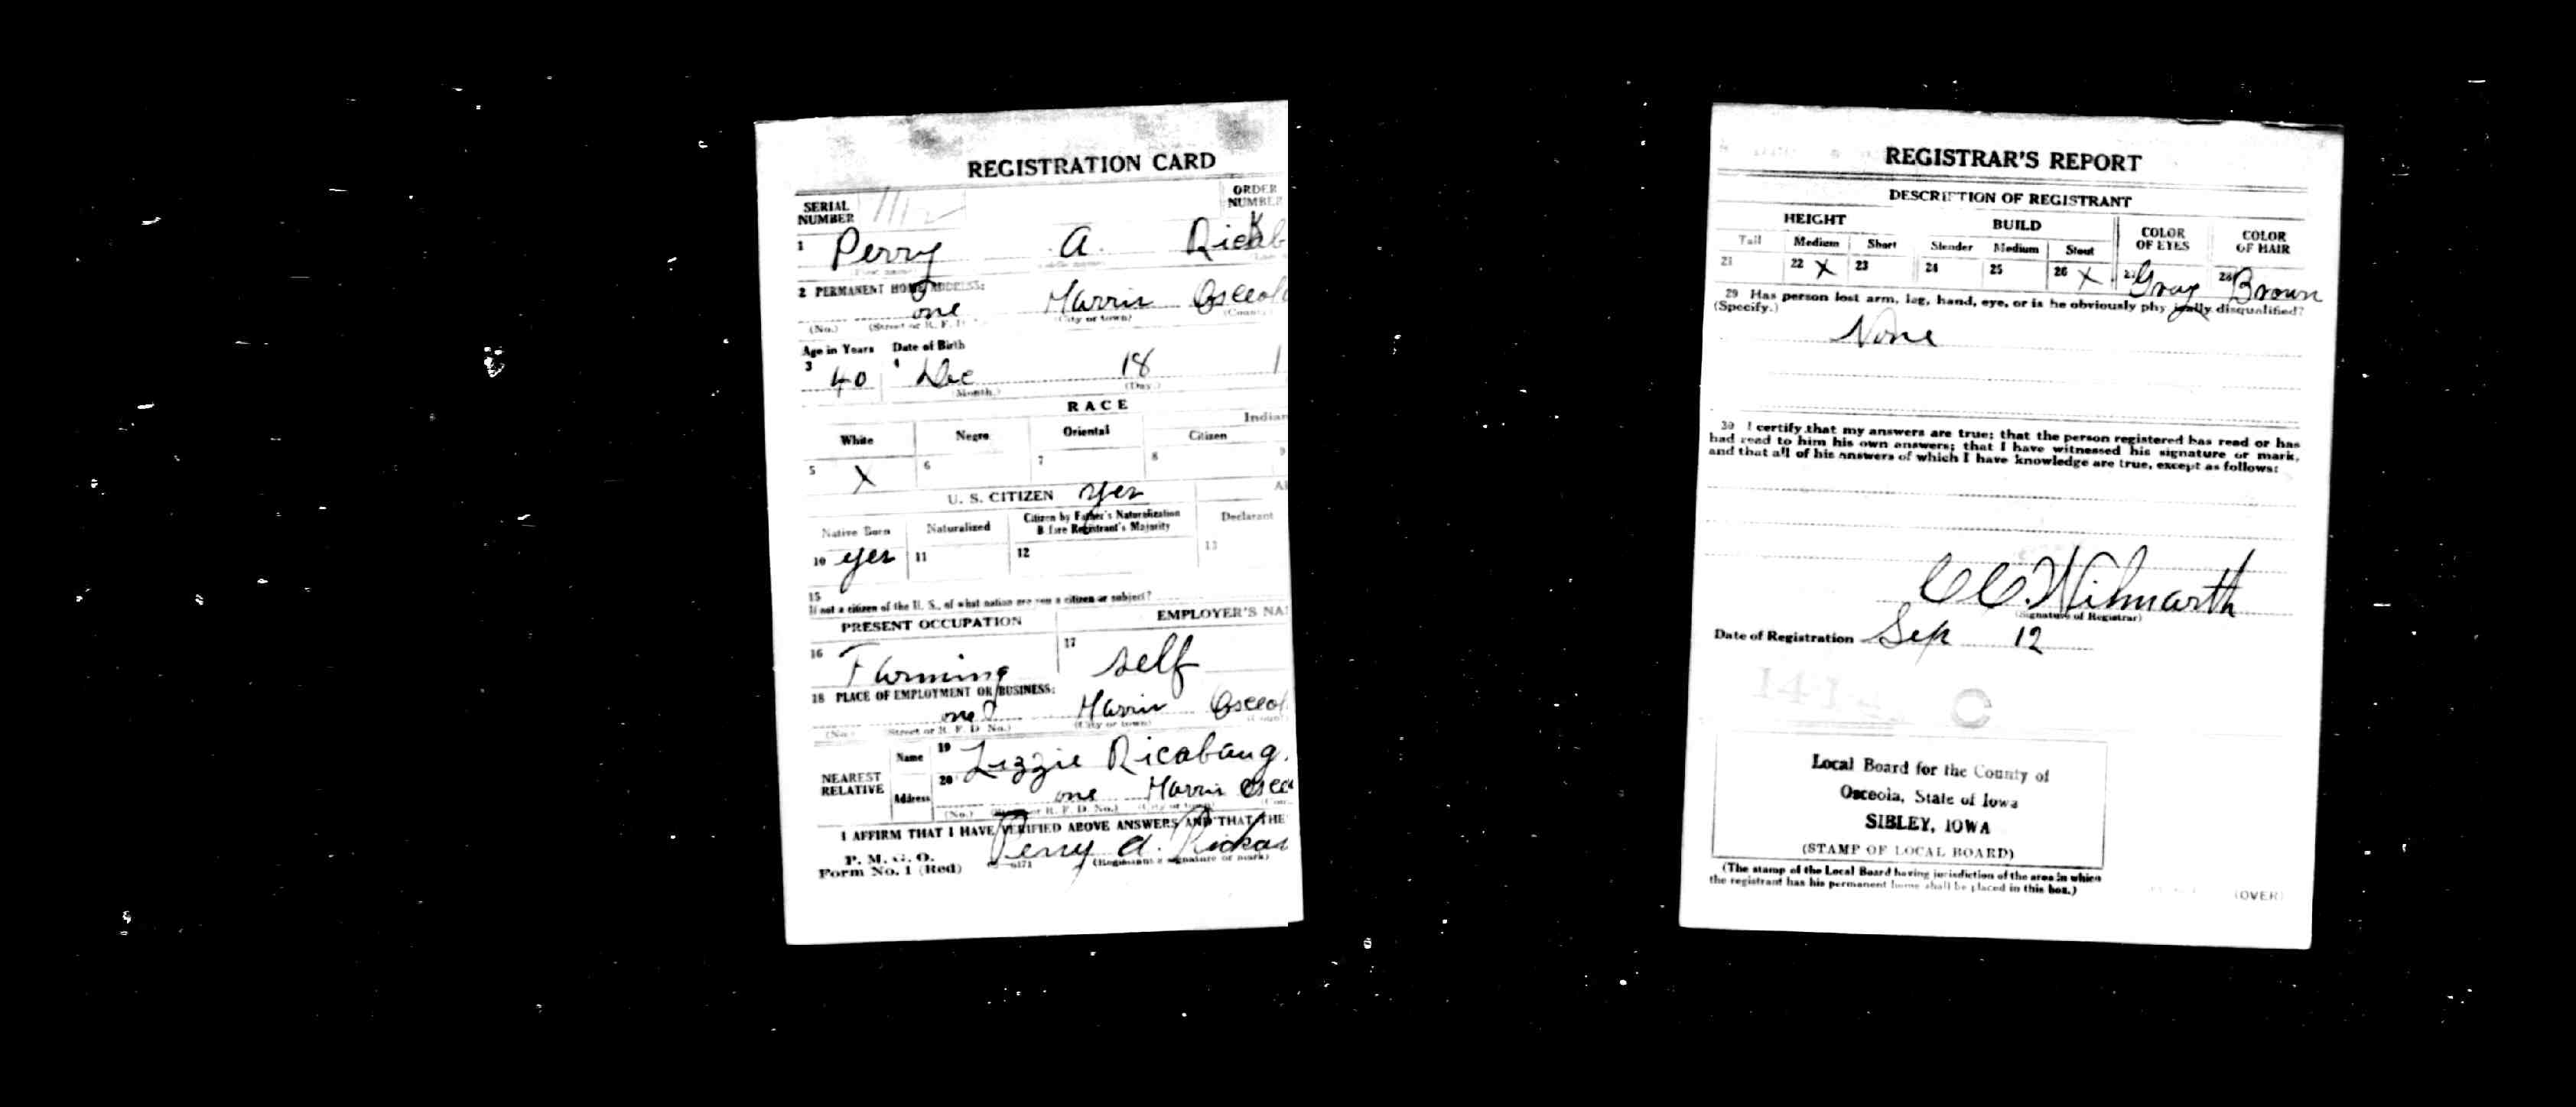 REGISTRATION CARD
SERIAL NUMBER
ORDER NUMBER
1 Perry A. Rickab
2 PERMANENT HOME ADDRESS:
one Harris Osceola
(No.) (Street or R. F. D. (City or town) (County
Age in Years Date of Birth
3 40 4 Dec 18 1
(Month.) (Day.)
RACE
White Negro Oriental Indian
Citizen
5 X 6 7 8 9
U. S. CITIZEN yes
Native Born Naturalized Citizen by Father's Naturalization Before Registrant's Majority Declarant
10 yes 11 12 13
15
If not a citizen of the U. S., of what nation are you a citizen or subject?
PRESENT OCCUPATION EMPLOYER'S NA
16 Farming 17 self
18 PLACE OF EMPLOYMENT OR BUSINESS:
one Harris Osceol
(No.) Street or R. F. D. No.) (City or town)
NEAREST RELATIVE
Name 19 Lizzie Ricabaug
Address 20 one Harris Osce
(No.) (Street or R. F. D. No.) (City or town) (Coun
I AFFIRM THAT I HAVE VERIFIED ABOVE ANSWERS AND THAT THE
P. M. G. O.
Form No. 1 (Red)
Perry A. Rickab
(Registrant's signature or mark)
REGISTRAR'S REPORT
DESCRIPTION OF REGISTRANT
HEIGHT BUILD COLOR OF EYES COLOR OF HAIR
Tall Medium Short Slender Medium Stout
21 22 X 23 24 25 26 X 27 Gray 28 Brown
29 Has person lost arm, leg, hand, eye, or is he obviously physically disqualified?
(Specify.)
None
30 I certify that my answers are true; that the person registered has read or has
had read to him his own answers; that I have witnessed his signature or mark,
and that all of his answers of which I have knowledge are true, except as follows:
C C. Wilmarth
(Signature of Registrar)
Date of Registration Sep 12
Local Board for the County of
Osceola, State of Iowa
SIBLEY, IOWA
(STAMP OF LOCAL BOARD)
(The stamp of the Local Board having jurisdiction of the area in which
the registrant has his permanent home shall be placed in this box.)
(OVER)